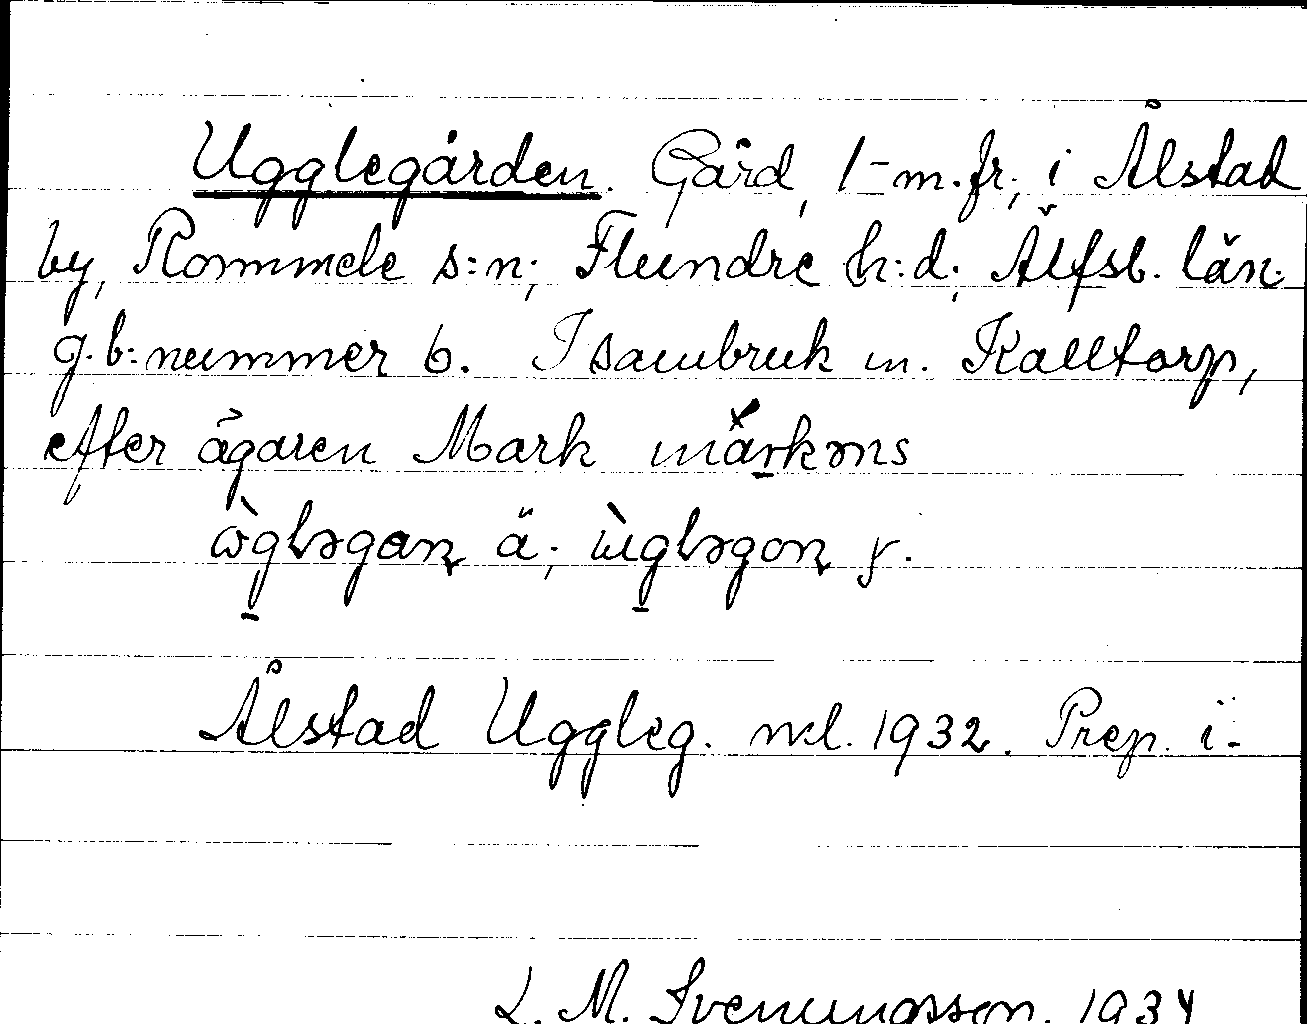 Ugglegården. Gård, 1-m.fr., i Ålstad
by, Rommele s:n; Flundre h:d; Älfsb. län.
g.b:nummer 6. I sambruk m. Kalltorp,
efter ägaren Mark märkəns
ὼgləgan ä; ùgləgon y.
Ålstad Uggleg. mtl. 1932. Prep. i.
L. M. Svenungsson. 1934